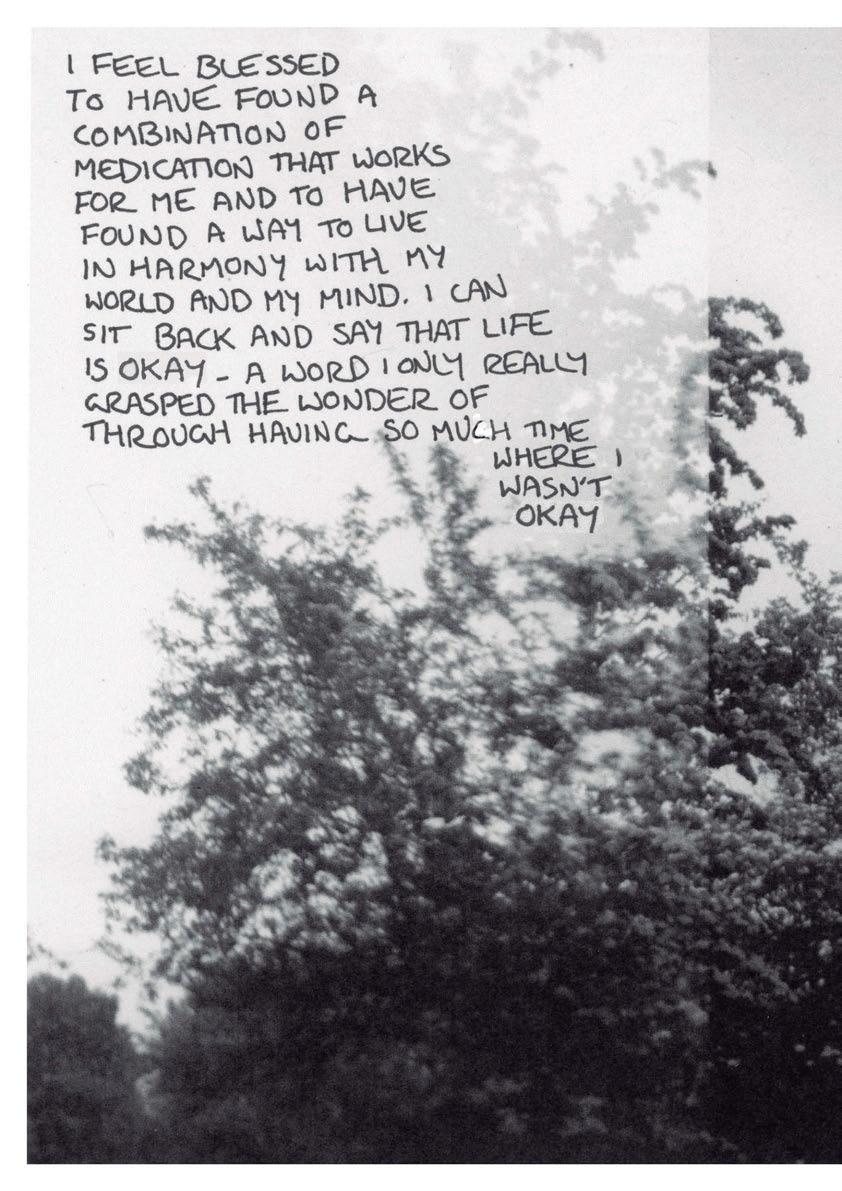 I FEEL BLESSED
TO HAVE FOUND A
COMBINATION OF
MEDICATION THAT WORKS
FOR ME AND TO HAVE
FOUND A WAY TO LIVE
IN HARMONY WITH MY
WORLD AND MY MIND. I CAN
SIT BACK AND SAY THAT LIFE
IS OKAY - A WORD I ONLY REALLY
GRASPED THE WONDER OF
THROUGH HAVING SO MUCH TIME
WHERE I
WASN'T
OKAY